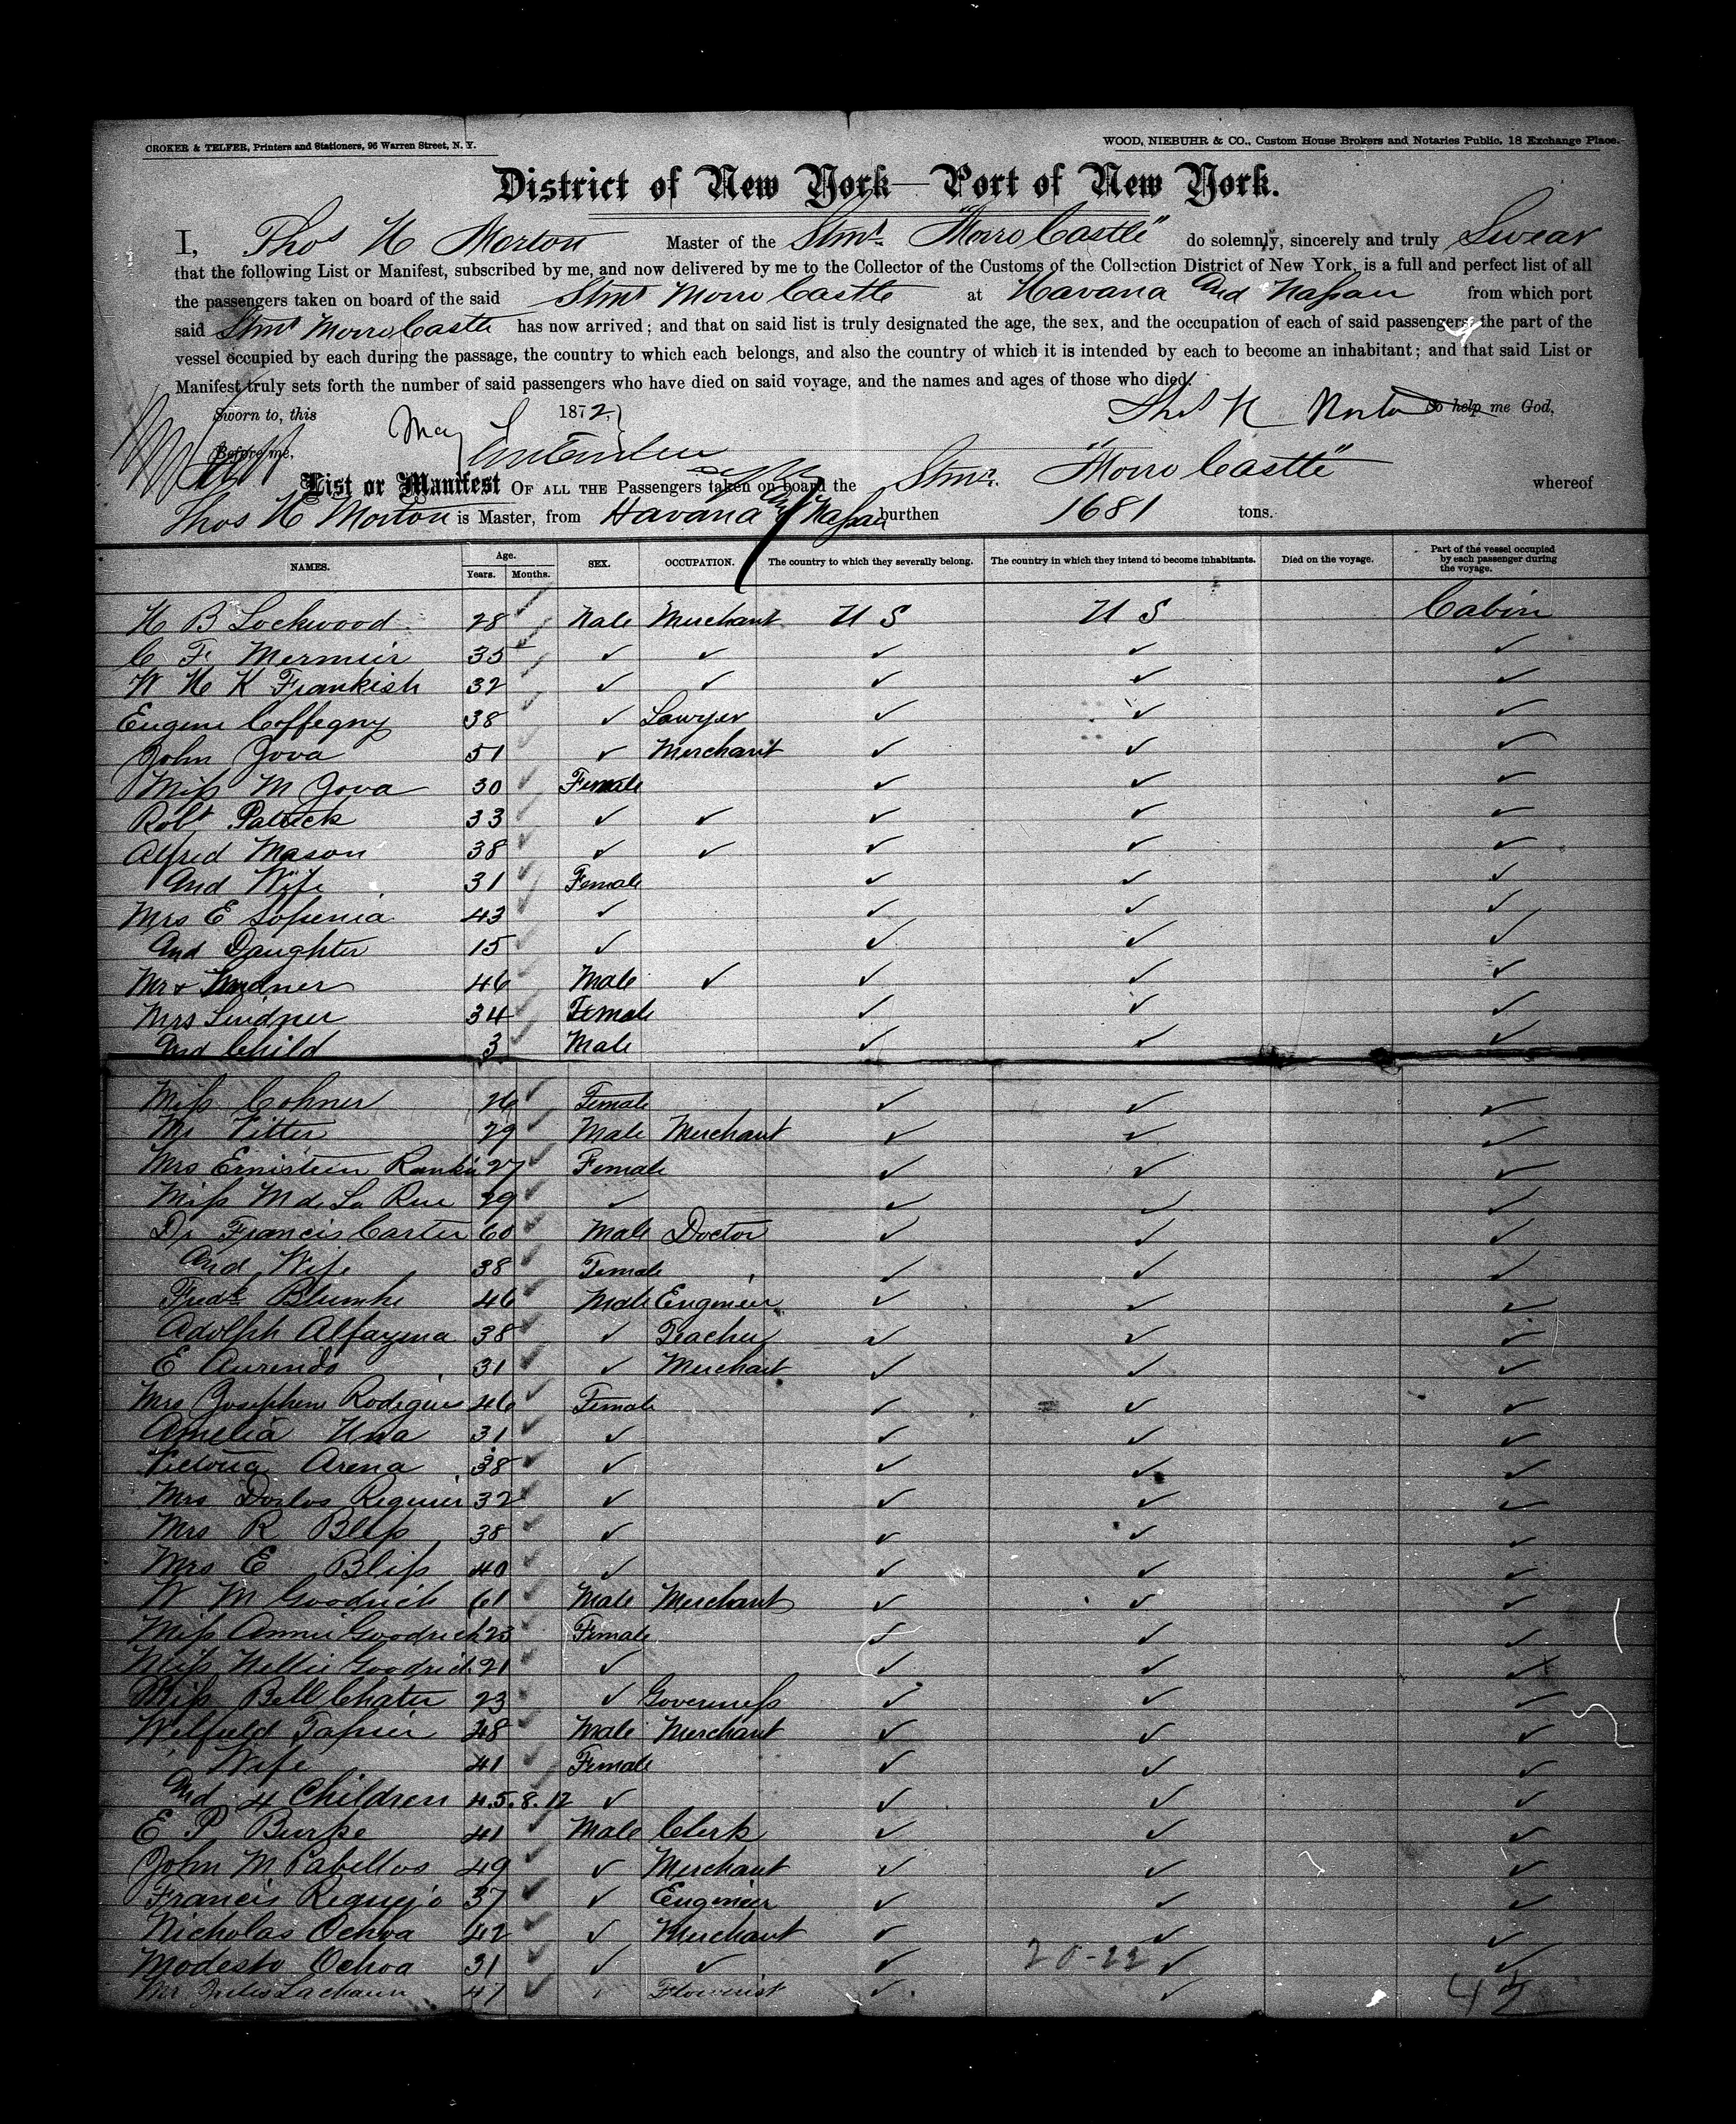 CROKER & TELFER, Printers and Stationers, 96 Warren Street, N. Y.
WOOD, NIEBUHR & CO., Custom House Brokers and Notaries Public, 18 Exchange Place.
District of New York—Port of New York.
I, Thos H Morton Master of the Stmr "Morro Castle" do solemnly, sincerely and truly Swear
that the following List or Manifest, subscribed by me, and now delivered by me to the Collector of the Customs of the Collection District of New York, is a full and perfect list of all
the passengers taken on board of the said Stmr Morro Castle at Havana and Nassau from which port
said Stmr Morro Castle has now arrived; and that on said list is truly designated the age, the sex, and the occupation of each of said passengers, the part of the
vessel occupied by each during the passage, the country to which each belongs, and also the country of which it is intended by each to become an inhabitant; and that said List or
Manifest truly sets forth the number of said passengers who have died on said voyage, and the names and ages of those who died.
Sworn to, this May 1872, Thos H Morton So help me God,
Before me,
List or Manifest OF ALL THE Passengers taken on board the Stmr. "Morro Castle" whereof
Thos H Morton is Master, from Havana and Nassau burthen 1681 tons.
NAMES. Age. Years. Months. SEX. OCCUPATION. The country to which they severally belong. The country in which they intend to become inhabitants. Died on the voyage. Part of the vessel occupied by each passenger during the voyage.
H B Lockwood 28 Male Merchant U S U S Cabin
C F 35 ✓ ✓ ✓ ✓ ✓
W H K Frankish 32 ✓ ✓ ✓ ✓ ✓
Eugene Coffegny 38 ✓ Lawyer ✓ ✓ ✓
John Jova 51 ✓ Merchant ✓ ✓ ✓
Miss M Jova 30 Female ✓ ✓ ✓
Robt Patrick 33 ✓ ✓ ✓ ✓ ✓
Alfred Mason 38 ✓ ✓ ✓ ✓ ✓
And Wife 31 Female ✓ ✓ ✓
Mrs E 43 ✓ ✓ ✓ ✓
And Daughter 15 ✓ ✓ ✓ ✓
Mr Lindner 46 Male ✓ ✓ ✓ ✓
Mrs Lindner 34 Female ✓ ✓ ✓
And Child 3 Male ✓ ✓ ✓
Miss Cohner 26 Female ✓ ✓ ✓
Mr Vitter 29 Male Merchant ✓ ✓ ✓
Mrs Rankin 27 Female ✓ ✓ ✓
Miss M de La Rue 29 ✓ ✓ ✓ ✓
Dr Francis Carter 60 Male Doctor ✓ ✓ ✓
And Wife 38 Female ✓ ✓ ✓
Fredk 46 Male Engineer ✓ ✓ ✓
Adolph 38 ✓ Teacher ✓ ✓ ✓
E 31 ✓ Merchant ✓ ✓ ✓
Mrs Josephine Rodigues 46 Female ✓ ✓ ✓
Amelia 31 ✓ ✓ ✓ ✓
Victoria Arena 38 ✓ ✓ ✓ ✓
Mrs 32 ✓ ✓ ✓ ✓
Mrs R Bliss 38 ✓ ✓ ✓ ✓
Mrs E Bliss 40 ✓ ✓ ✓ ✓
W M Goodrich 61 Male Merchant ✓ ✓ ✓
Miss Annie Goodrich 23 Female ✓ ✓ ✓
Miss Nellie Goodrich 21 ✓ ✓ ✓ ✓
Miss Bell Chater 23 ✓ Governess ✓ ✓ ✓
Wilfield 48 Male Merchant ✓ ✓ ✓
" Wife 41 Female ✓ ✓ ✓
And 4 Children 4.5.8.12 ✓ ✓ ✓ ✓
E P 41 Male Clerk ✓ ✓ ✓
John M Cabellos 49 ✓ Merchant ✓ ✓ ✓
Francis Requejo 37 ✓ Engineer ✓ ✓ ✓
Nicholas Ochoa 42 ✓ Merchant ✓ ✓ ✓
Modesto Ochoa 31 ✓ ✓ ✓ 20-22 ✓ ✓
Mr Jules Lachaum 47 Flowerist ✓ ✓ 42